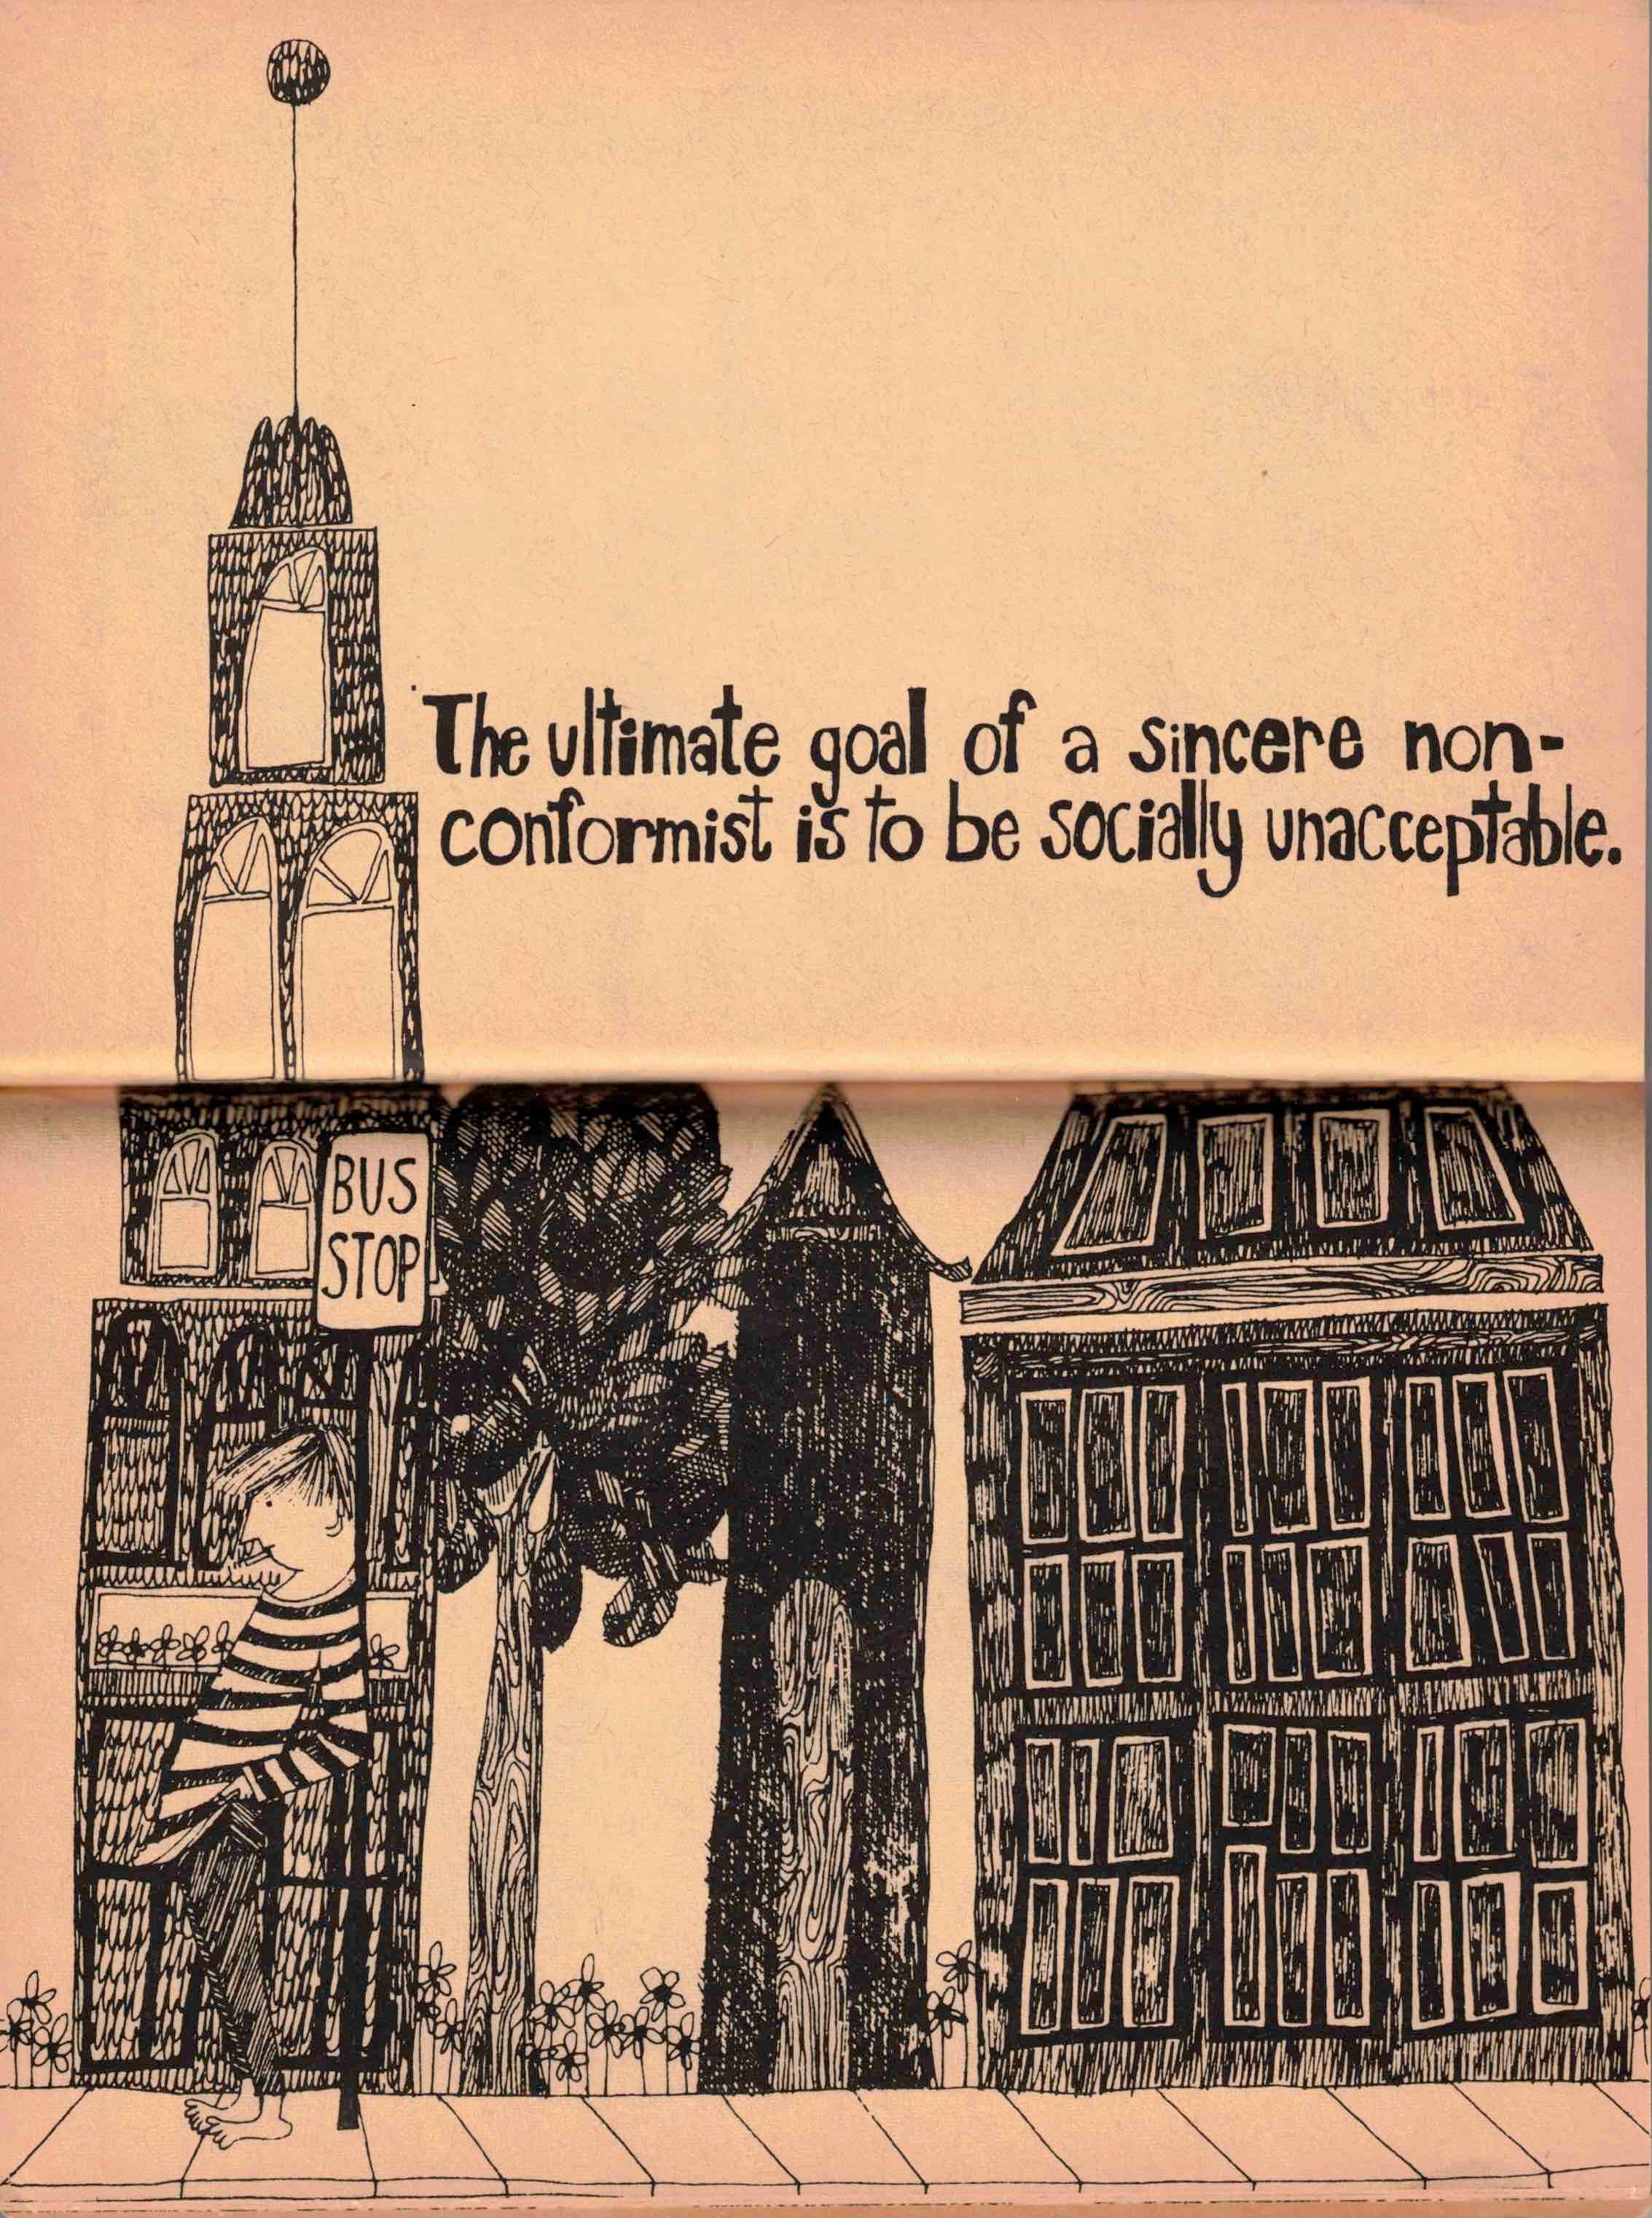 The ultimate goal of a sincere non-
conformist is to be socially unacceptable.
BUS
STOP